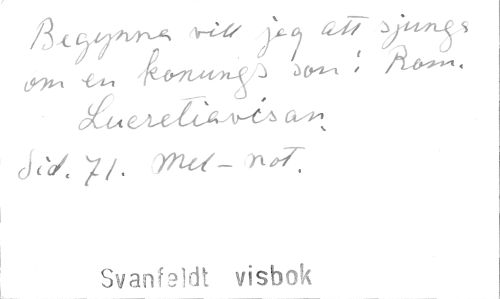 Begynna vill jag att sjunga
om en konungs son i Rom.
Lucretiavisan.
Sid. 71. Mel-not.
Svanfeldt visbok